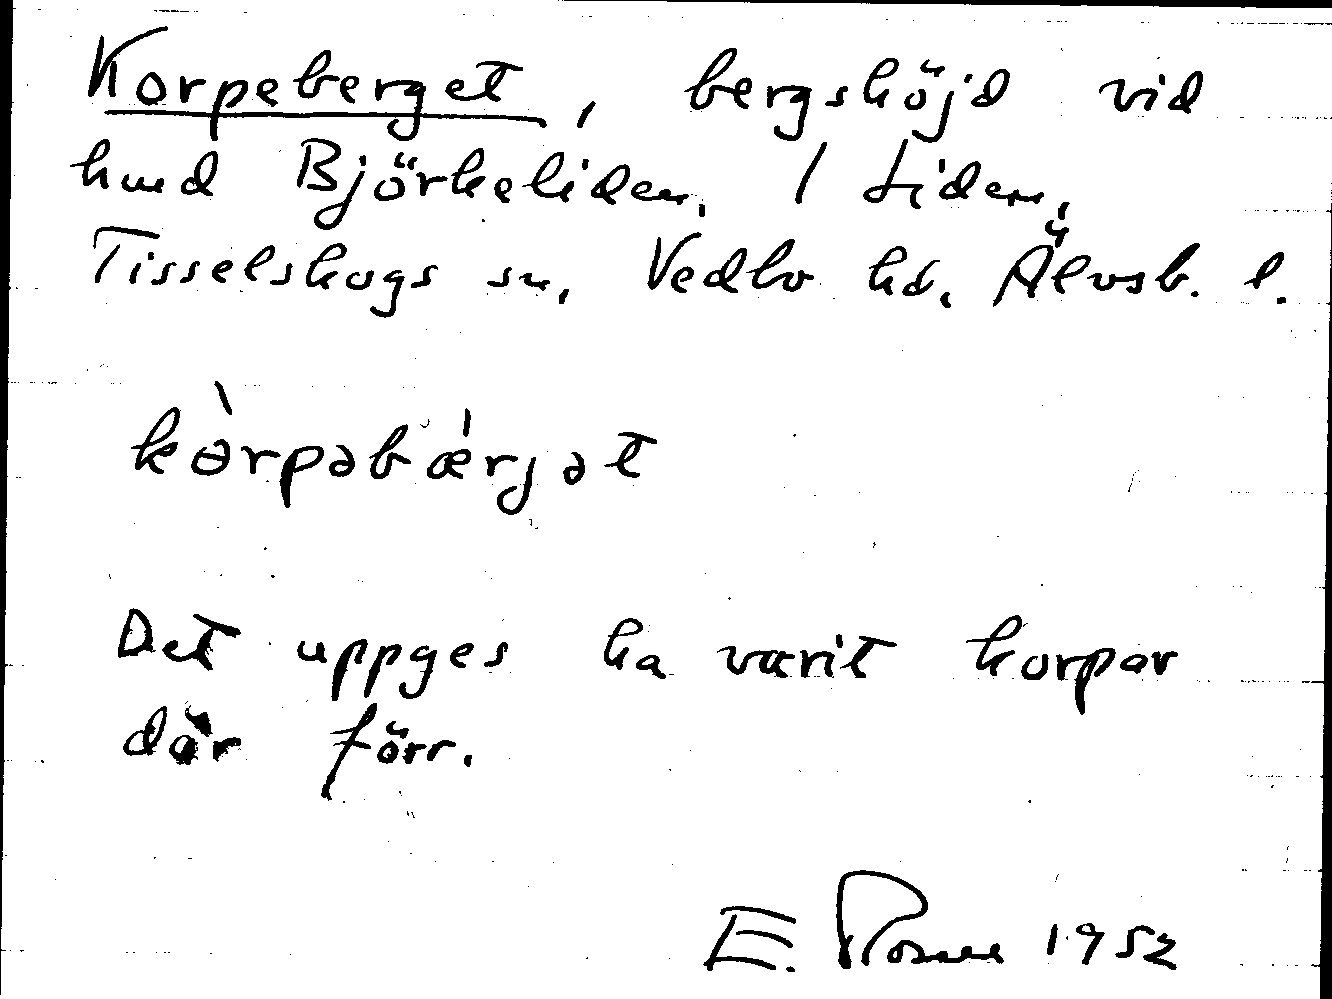 Korpeberget, bergshöjd vid
hmd Björkeliden, 1 Liden,
Tisselskogs sn, Vedbo hd, Älvsb. l.
kɵ̀rpəbæ̇rjət
Det uppges ha varit korpar
där förr.
E. 1952